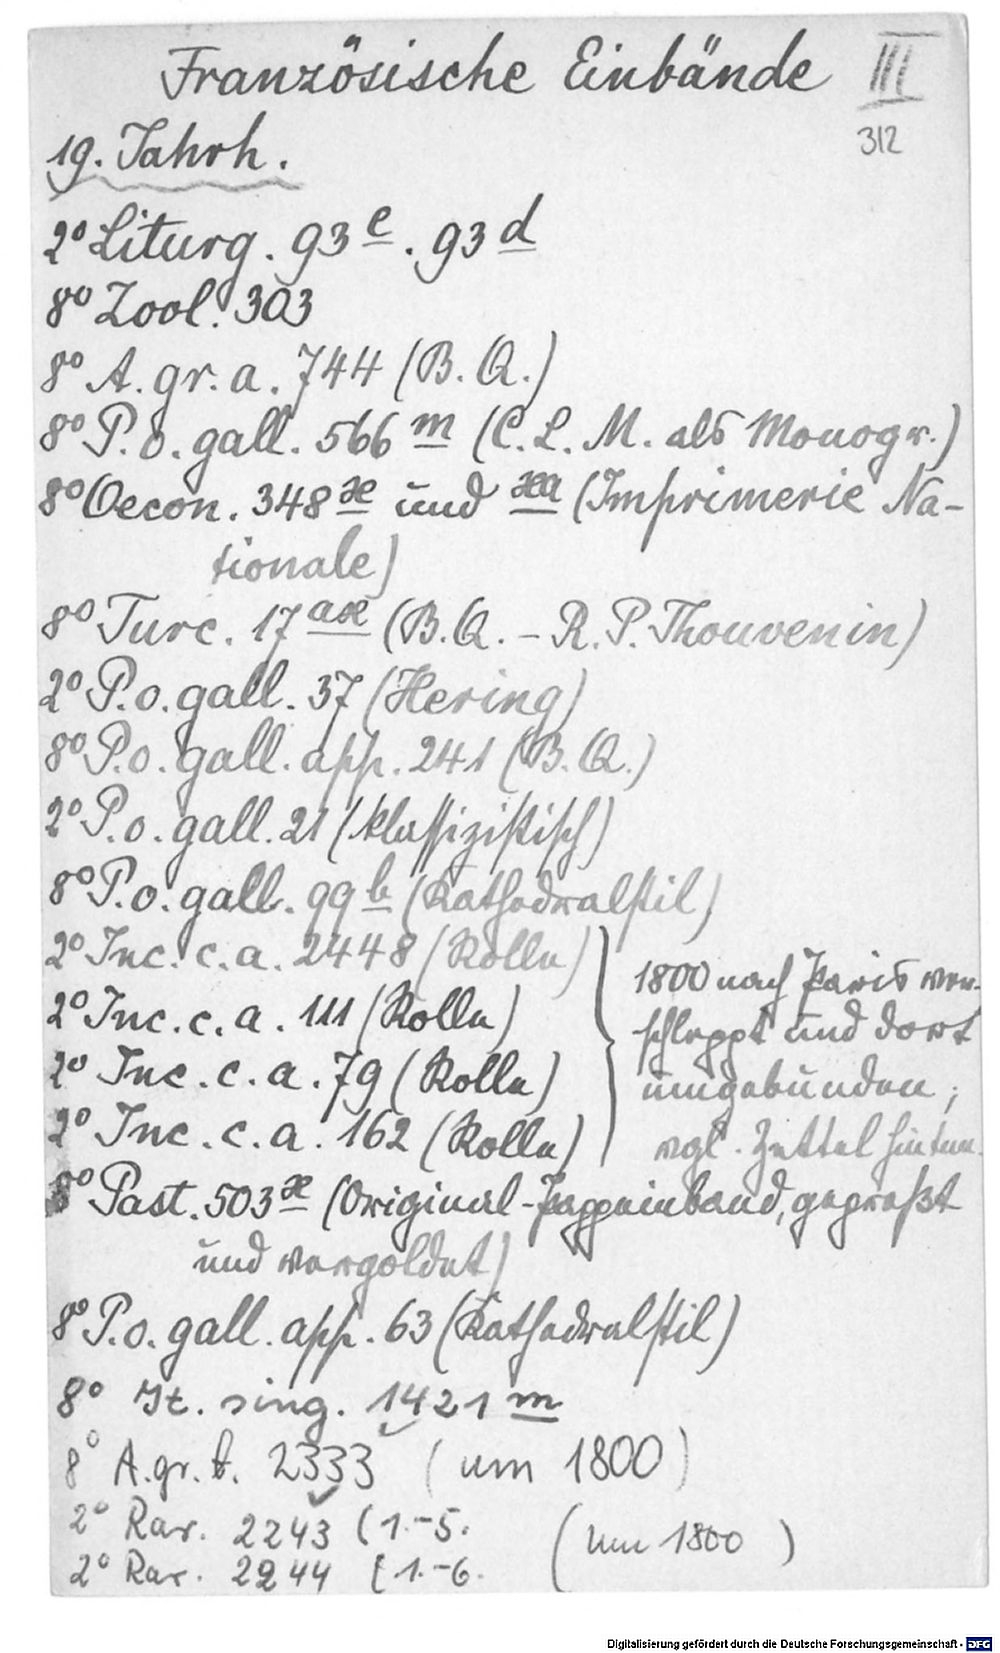 Französische Einbände III
312
19. Jahrh.
2° Liturg. 93 e. 93 d
8° Zool. 303
8° A. gr. a. 744 (B. Q.)
8° P. o. gall. 566 m (C. L. M. als Monogr.)
8° Oecon. 348 x und xa (Imprimerie Na-
tionale)
8° Turc. 17 ax (B. Q. - R. P. Thouvenin)
2° P. o. gall. 37 (Hering)
8° P. o. gall. app. 241 (B. Q.)
2° P. o. gall. 21 (klassizistisch)
8° P. o. gall. 99 b (Kathedralstil)
2° Inc. c. a. 2448 (Rolle)
2° Inc. c. a. 111 (Rolle)
2° Inc. c. a. 79 (Rolle)
2° Inc. c. a. 162 (Rolle)
1800 nach Paris ver-
schleppt und dort
umgebunden;
vgl. Zettel hinten.
8° Past. 503 x (Original-Pappeinband, gepreßt
und vergoldet)
8° P. o. gall. app. 63 (Kathedralstil)
8° It. sing. 1421 m
8° A. gr. b. 2333 (um 1800)
2° Rar. 2243 (1.-5.
2° Rar. 2244 (1.-6.
(um 1800)
Digitalisierung gefördert durch die Deutsche Forschungsgemeinschaft - DFG